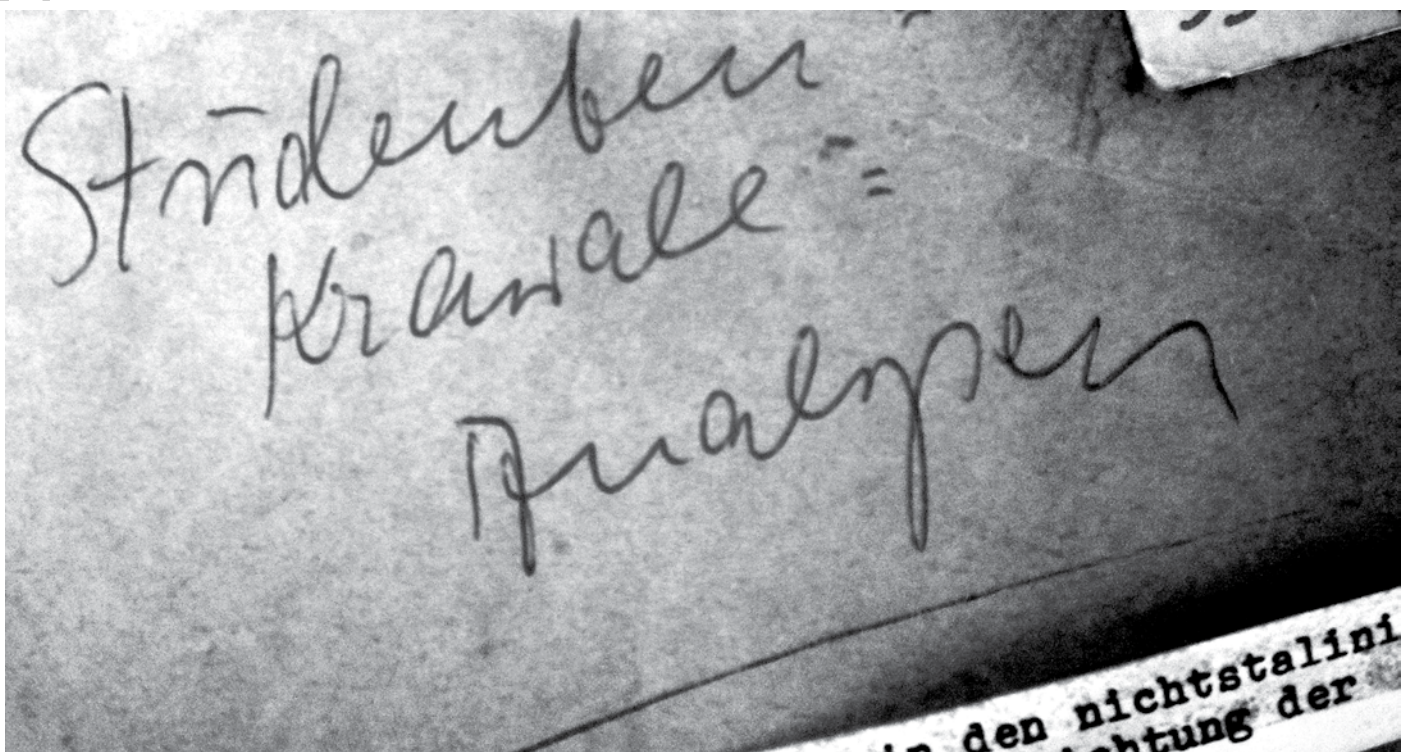 Studenten
Krawalle =
Analysen
in den nichtstalini
chtung der